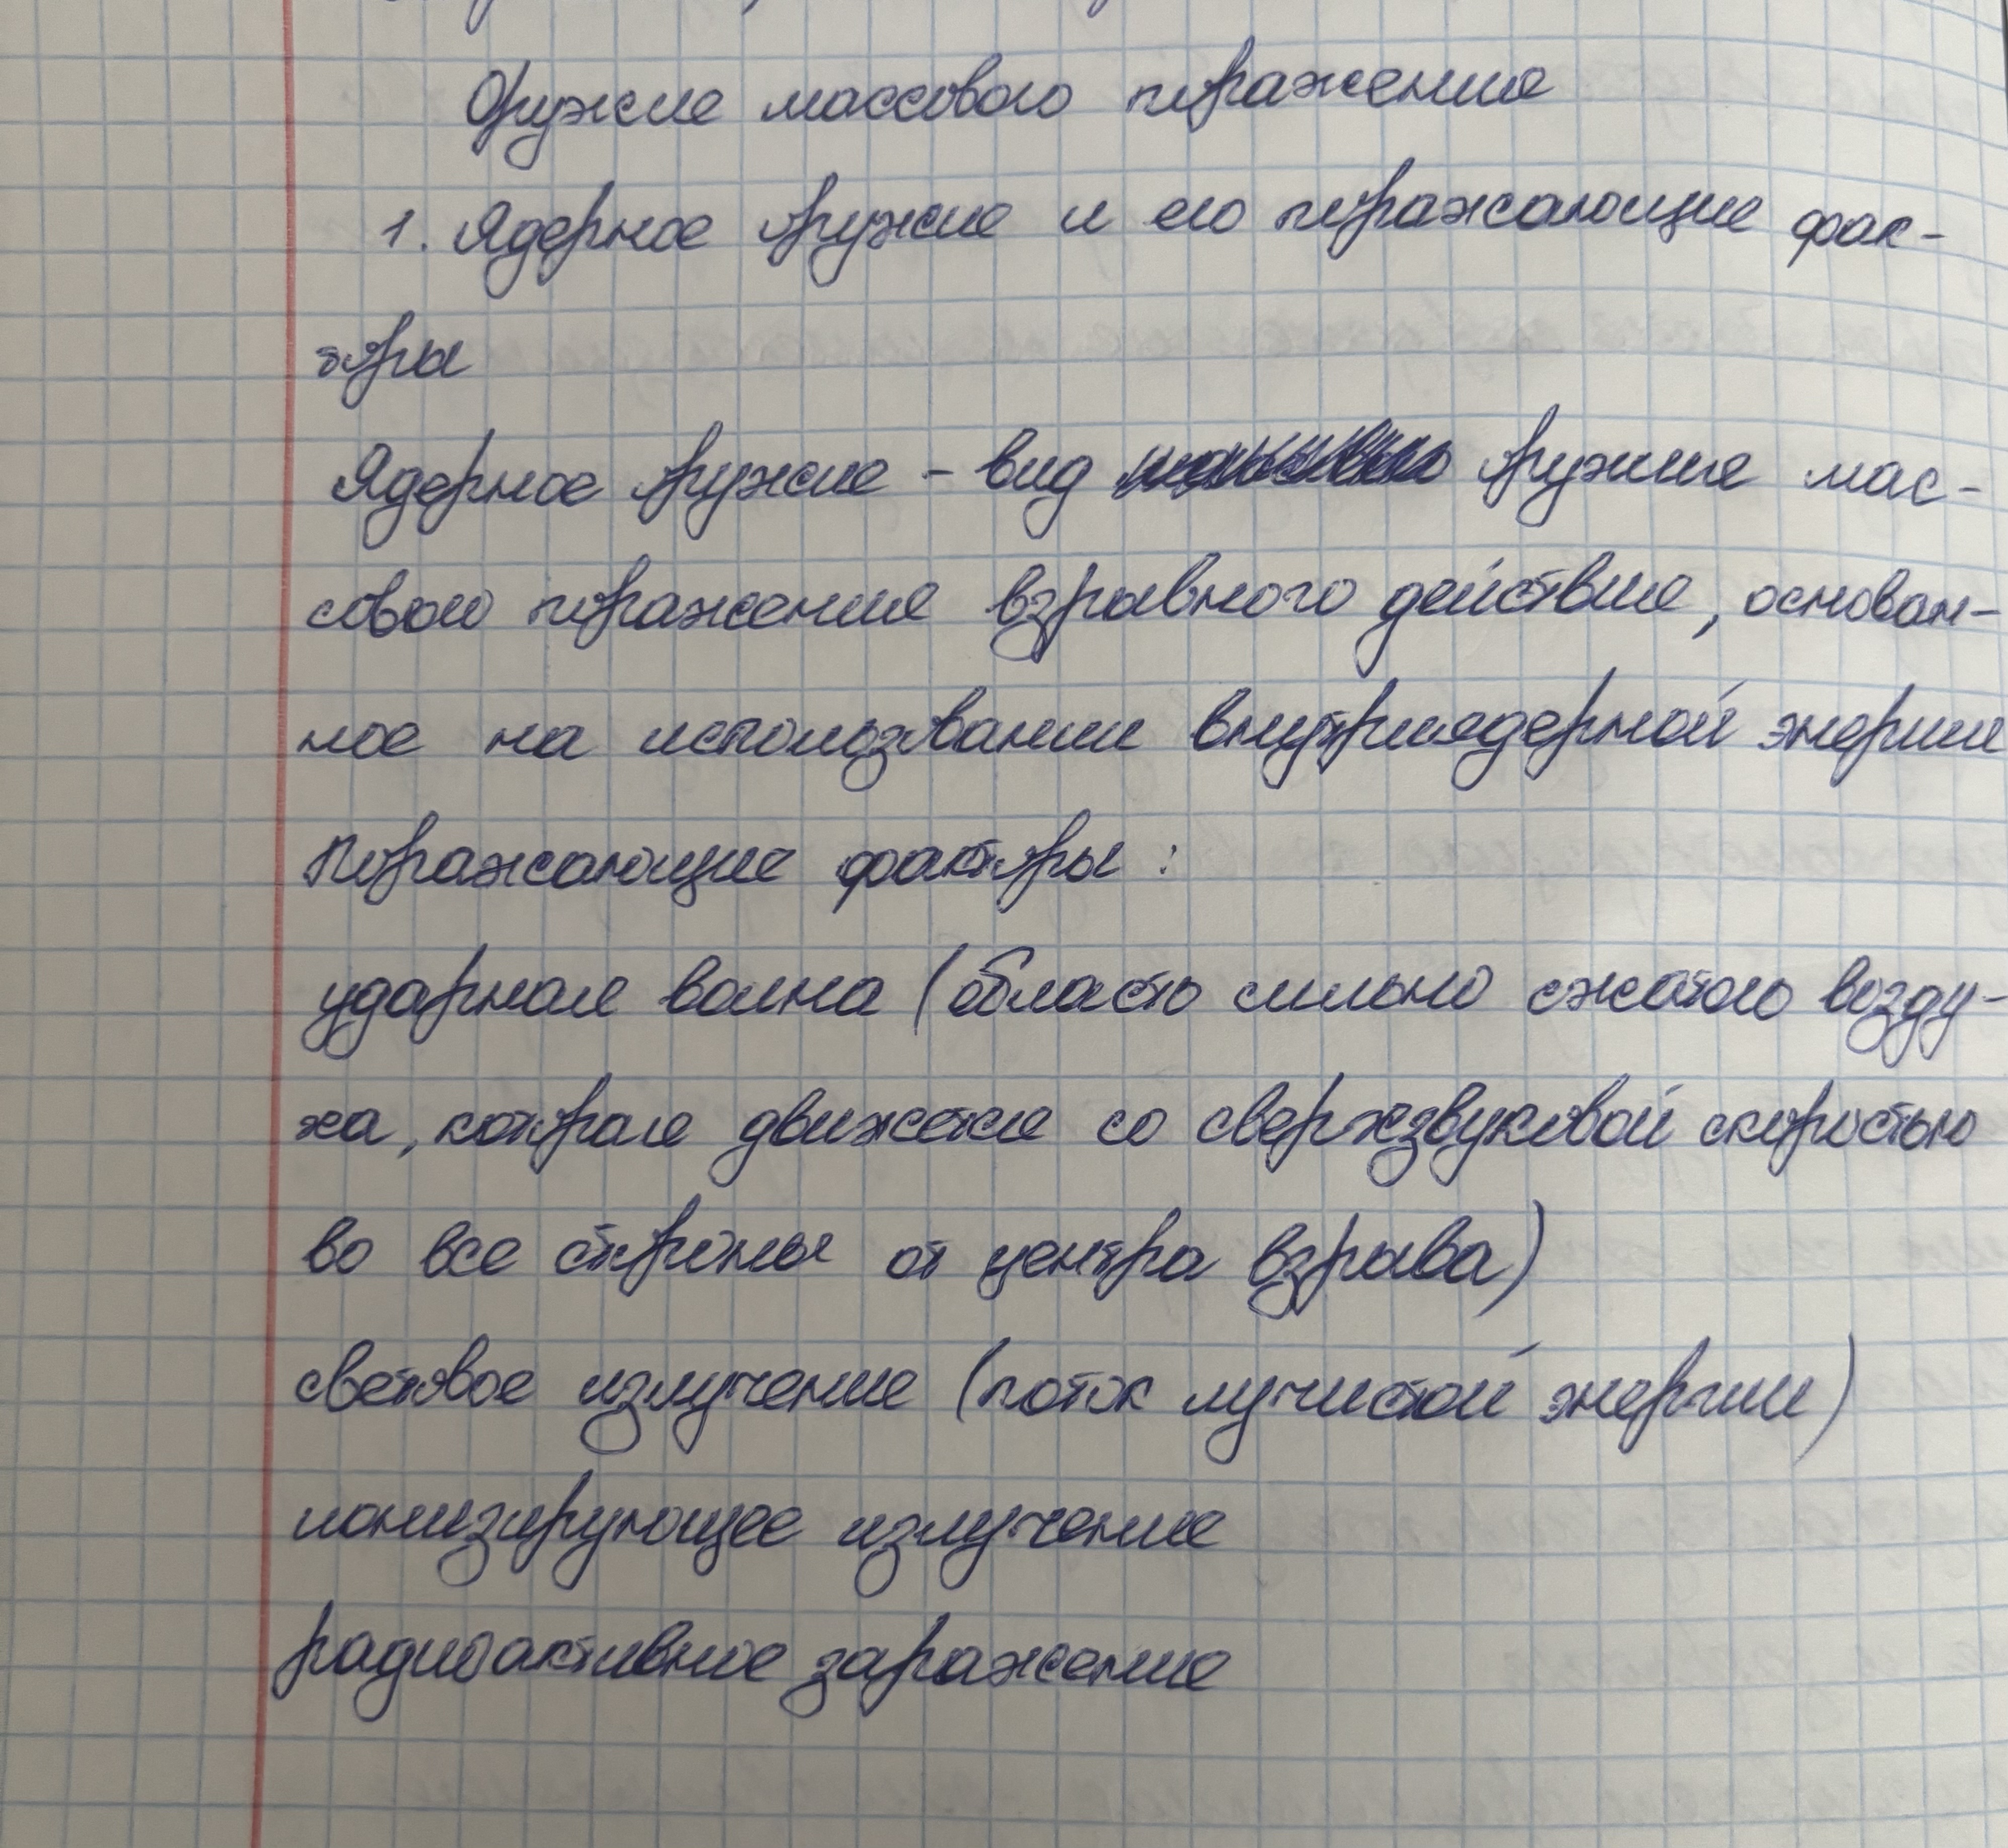 Оружие массового поражения
1. Ядерное оружие и его поражающие фак-
торы
Ядерное оружие - вид оружия мас-
сового поражения взрывного действия, основан-
ное на использовании внутриядерной энергии
Поражающие факторы:
ударная волна (область сильно сжатого возду-
ха, которая движется со сверхзвуковой скоростью
во все стороны от центра взрыва)
световое излучение (поток лучистой энергии)
ионизирующее излучение
радиоактивное заражение